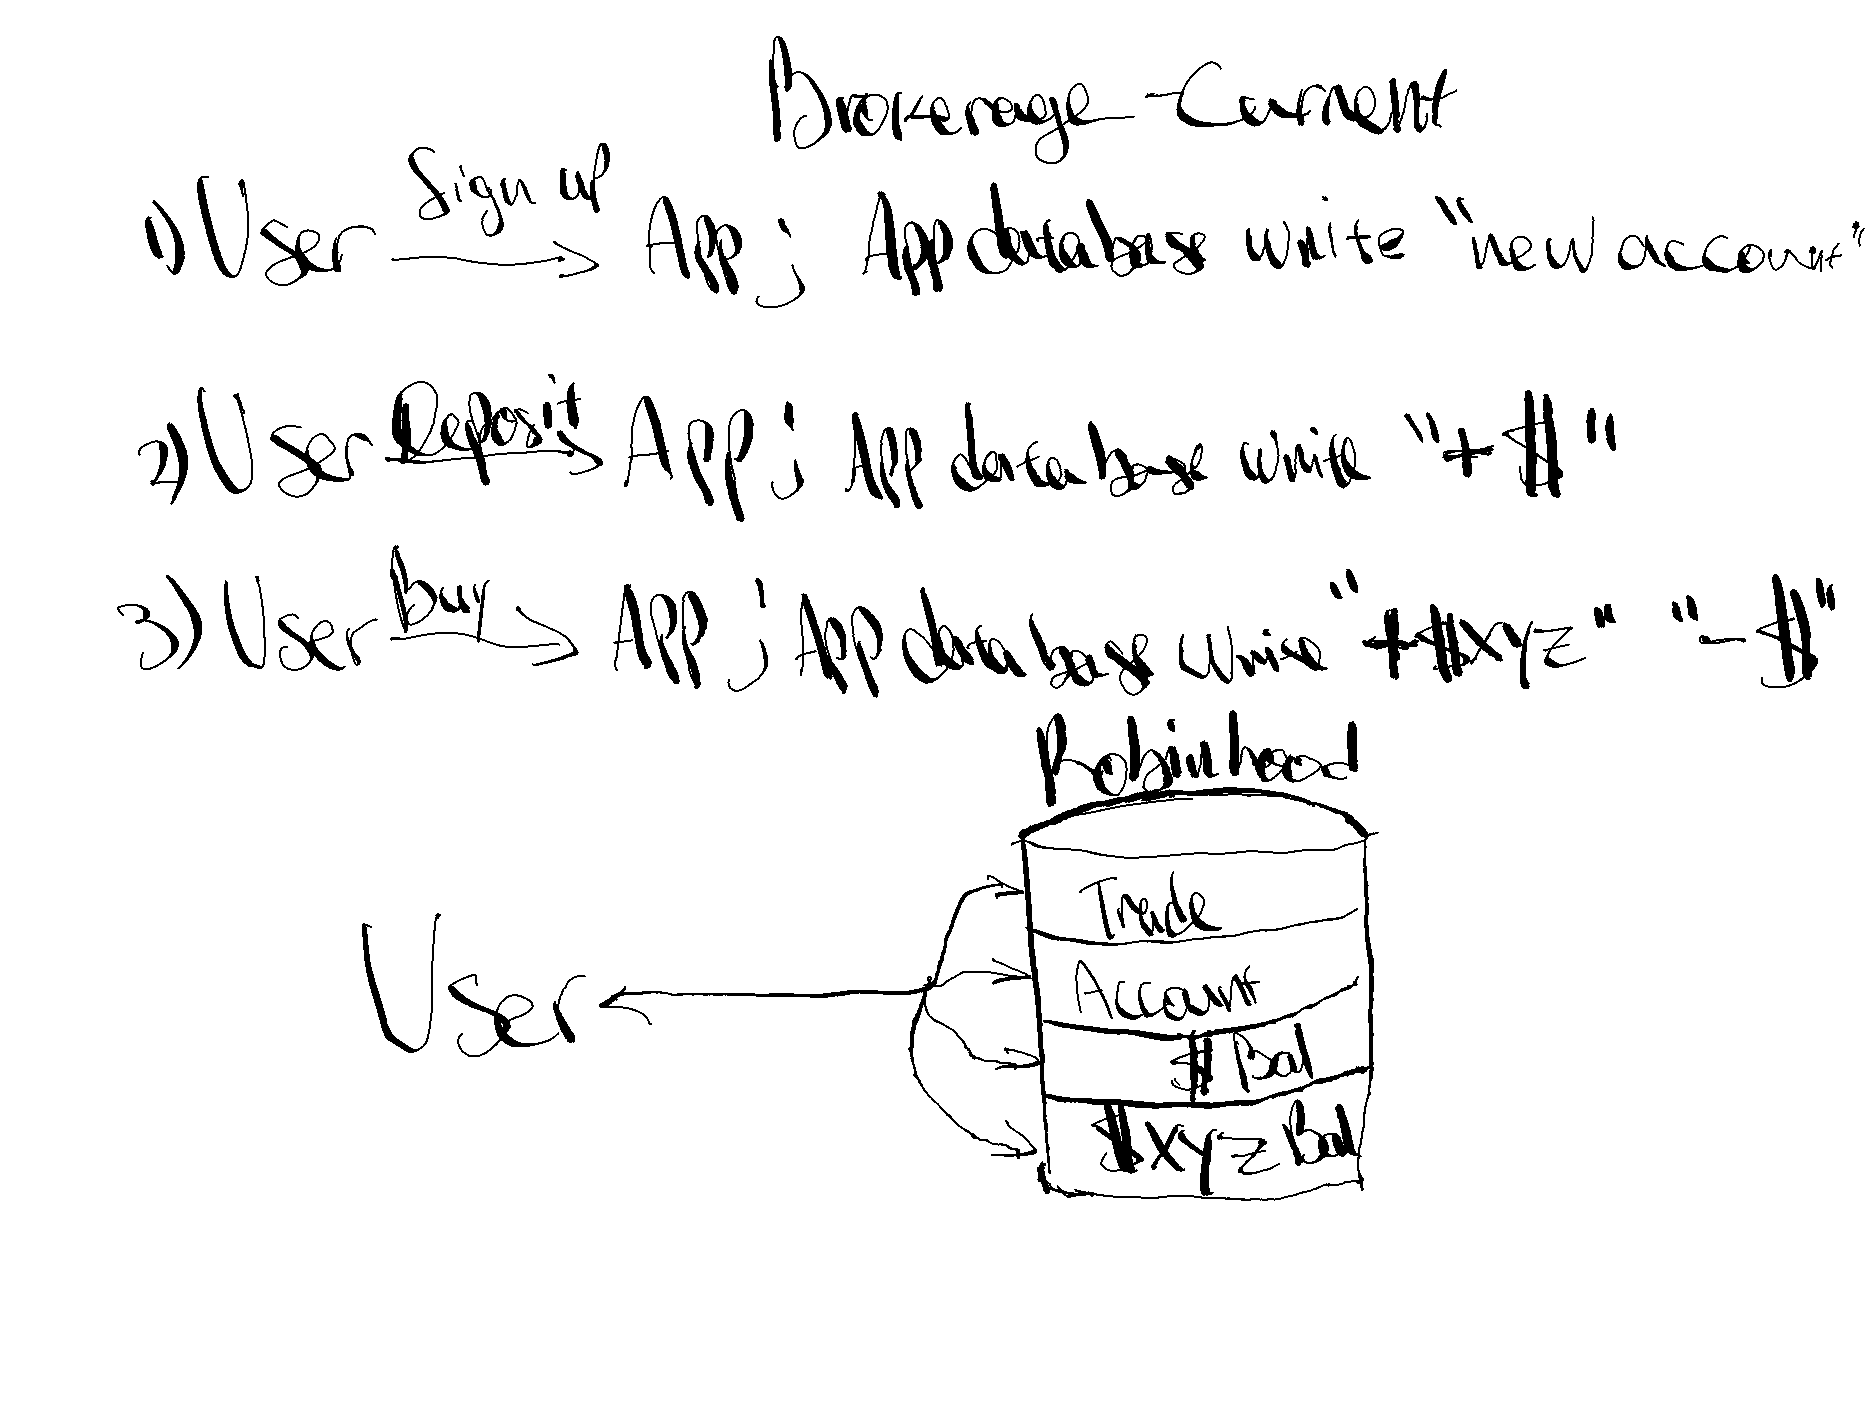 Brokerage - Current
1) User Sign up → App; App database write "new account"
2) User Deposit → App; App database write "+$"
3) User Buy → App; App database write "+$XYZ" "-$"
Robinhood
Trade
User
Account
$ Bal
$XYZ Bal